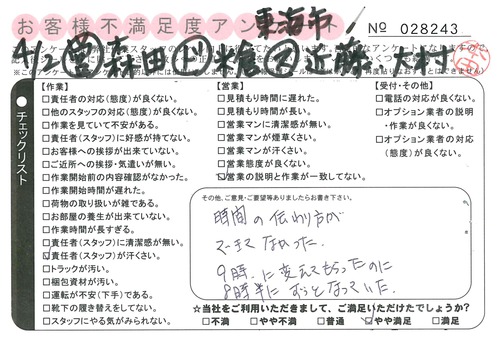 お客様不満足度アンケート
東海市
No 028243
4/2 営 森田 ド 米倉 ス 近藤、大村
チェックリスト
【作業】
□責任者の対応(態度)が良くない。
□他のスタッフの対応(態度)が良くない。
□作業を見ていて不安がある。
□責任者(スタッフ)に好感が持てない。
□お客様への挨拶が出来ていない。
□ご近所への挨拶・気遣いが無い。
□作業開始前の内容確認がなかった。
□作業開始時間が遅れた。
□荷物の取り扱いが雑である。
□お部屋の養生が出来ていない。
□作業時間が長すぎる。
□責任者(スタッフ)に清潔感が無い。
□責任者(スタッフ)が汗くさい。
□トラックが汚い。
□梱包資材が汚い。
□運転が不安(下手)である。
□靴下の履き替えをしてない。
□スタッフにやる気がみられない。
【営業】
□見積もり時間に遅れた。
□見積もり時間が長い。
□営業マンに清潔感が無い。
□営業マンが煙草くさい。
□営業マンが汗くさい。
□営業態度が良くない。
☑営業の説明と作業が一致してない。
【受付・その他】
□電話の対応が良くない。
□オプション業者の説明
・作業が良くない。
□オプション業者の対応
(態度)が良くない。
その他、ご意見・ご要望等ありましたらお書き下さい。
時間の伝わり方が
できてなかった。
9時に変えてもらったのに
8時半にずっとなっていた。
☆当社をご利用いただきまして、ご満足いただけたでしょうか?
□不満 □やや不満 □普通 ☑やや満足 □満足